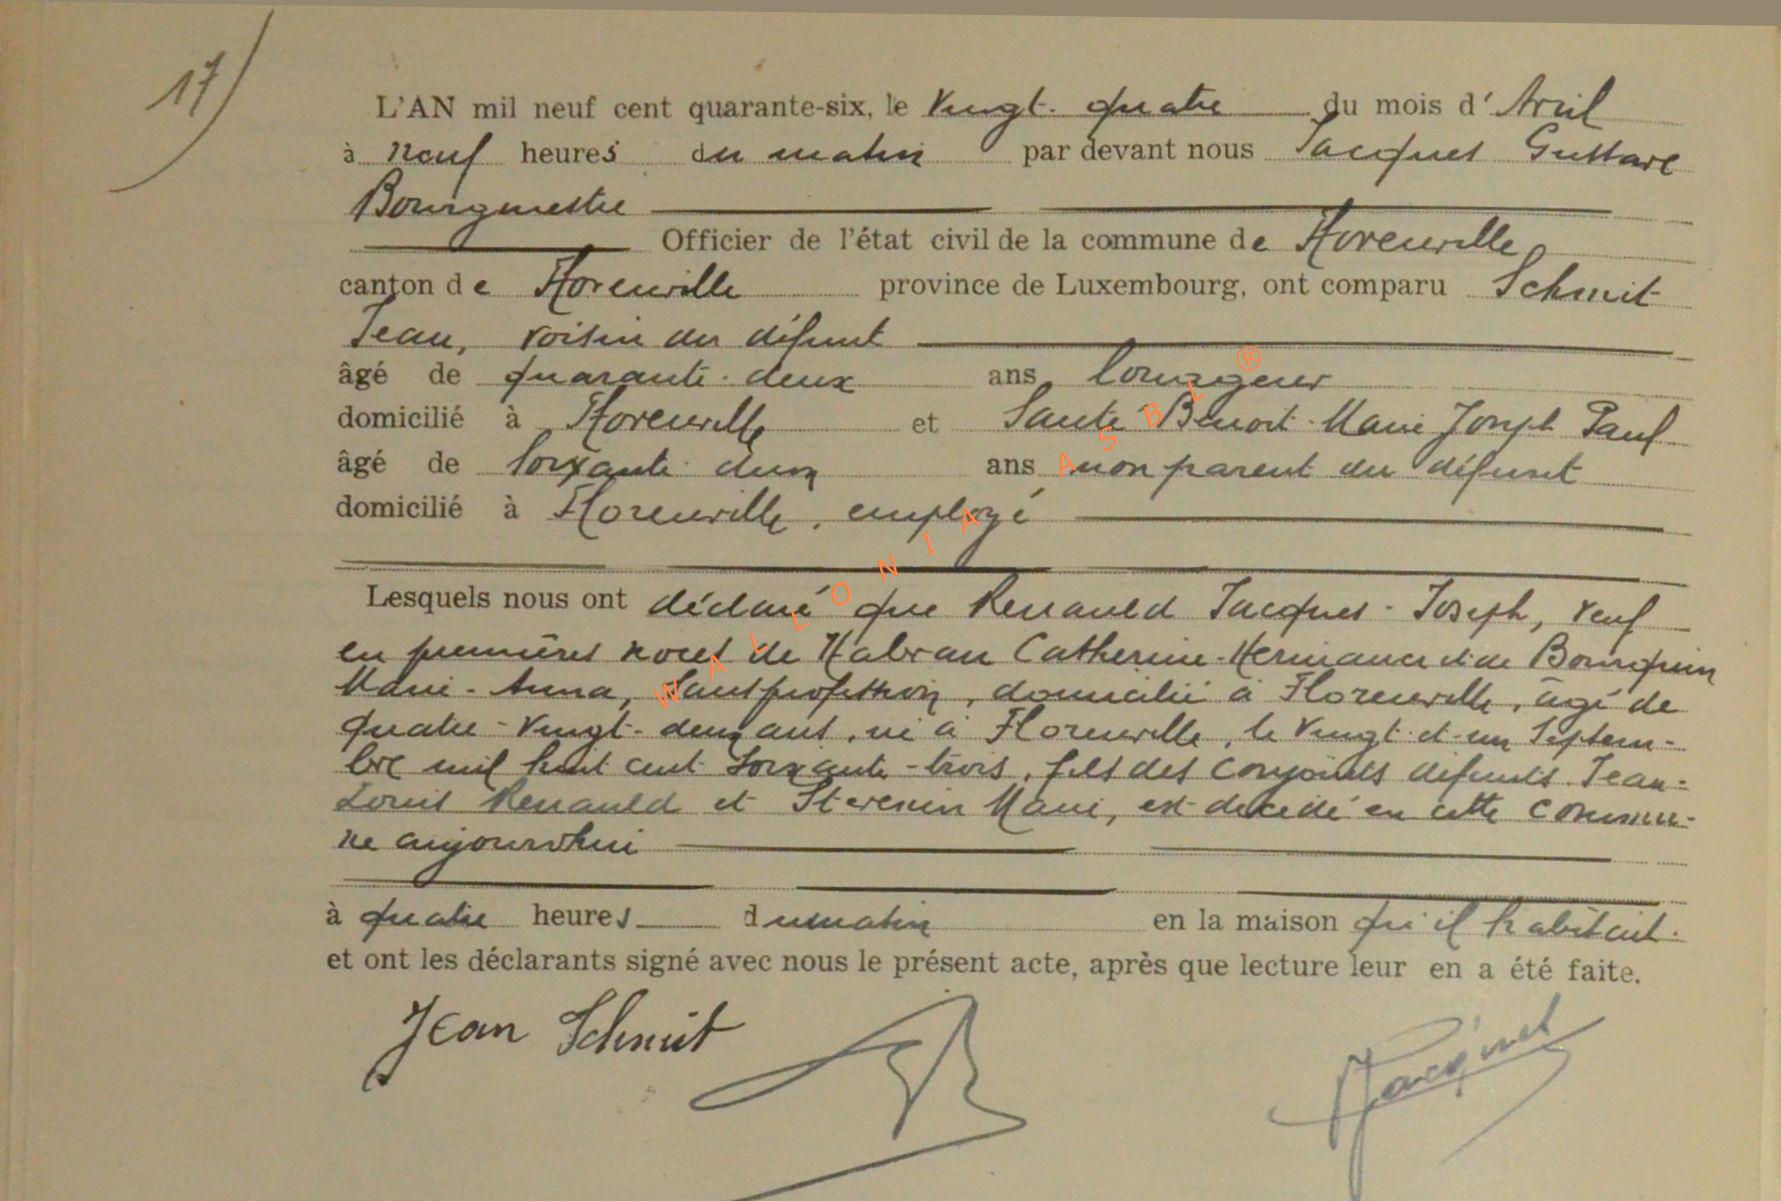 17)
L'AN mil neuf cent quarante-six, le Vingt-quatre du mois d'Avril
à neuf heures du matin par devant nous Jacques Gustave
Bourgmestre
Officier de l'état civil de la commune de Florenville
canton de Florenville province de Luxembourg, ont comparu Schmit
Jean, voisin du défunt
âgé de quarante-deux ans,
domicilié à Florenville et Benoit-Marie Joseph Paul
âgé de soixante ans non parent du défunt
domicilié à Florenville, employé
Lesquels nous ont déclaré que Renauld Jacques-Joseph, veuf
en premières noces de Habran Catherine-Hermance et de Bourguin
Marie-Anna, sans profession, domicilié à Florenville, âgé de
quatre-vingt-deux ans, né à Florenville, le vingt-et-un Septem-
bre mil huit cent soixante-trois, fils des conjoints défunts Jean-
Louis Renauld et Stevenin Marie, est décédé en cette commu-
ne aujourd'hui
à quatre heures du matin en la maison qu'il habitait.
et ont les déclarants signé avec nous le présent acte, après que lecture leur en a été faite.
Jean Schmit
WALLONIA ASBL ®